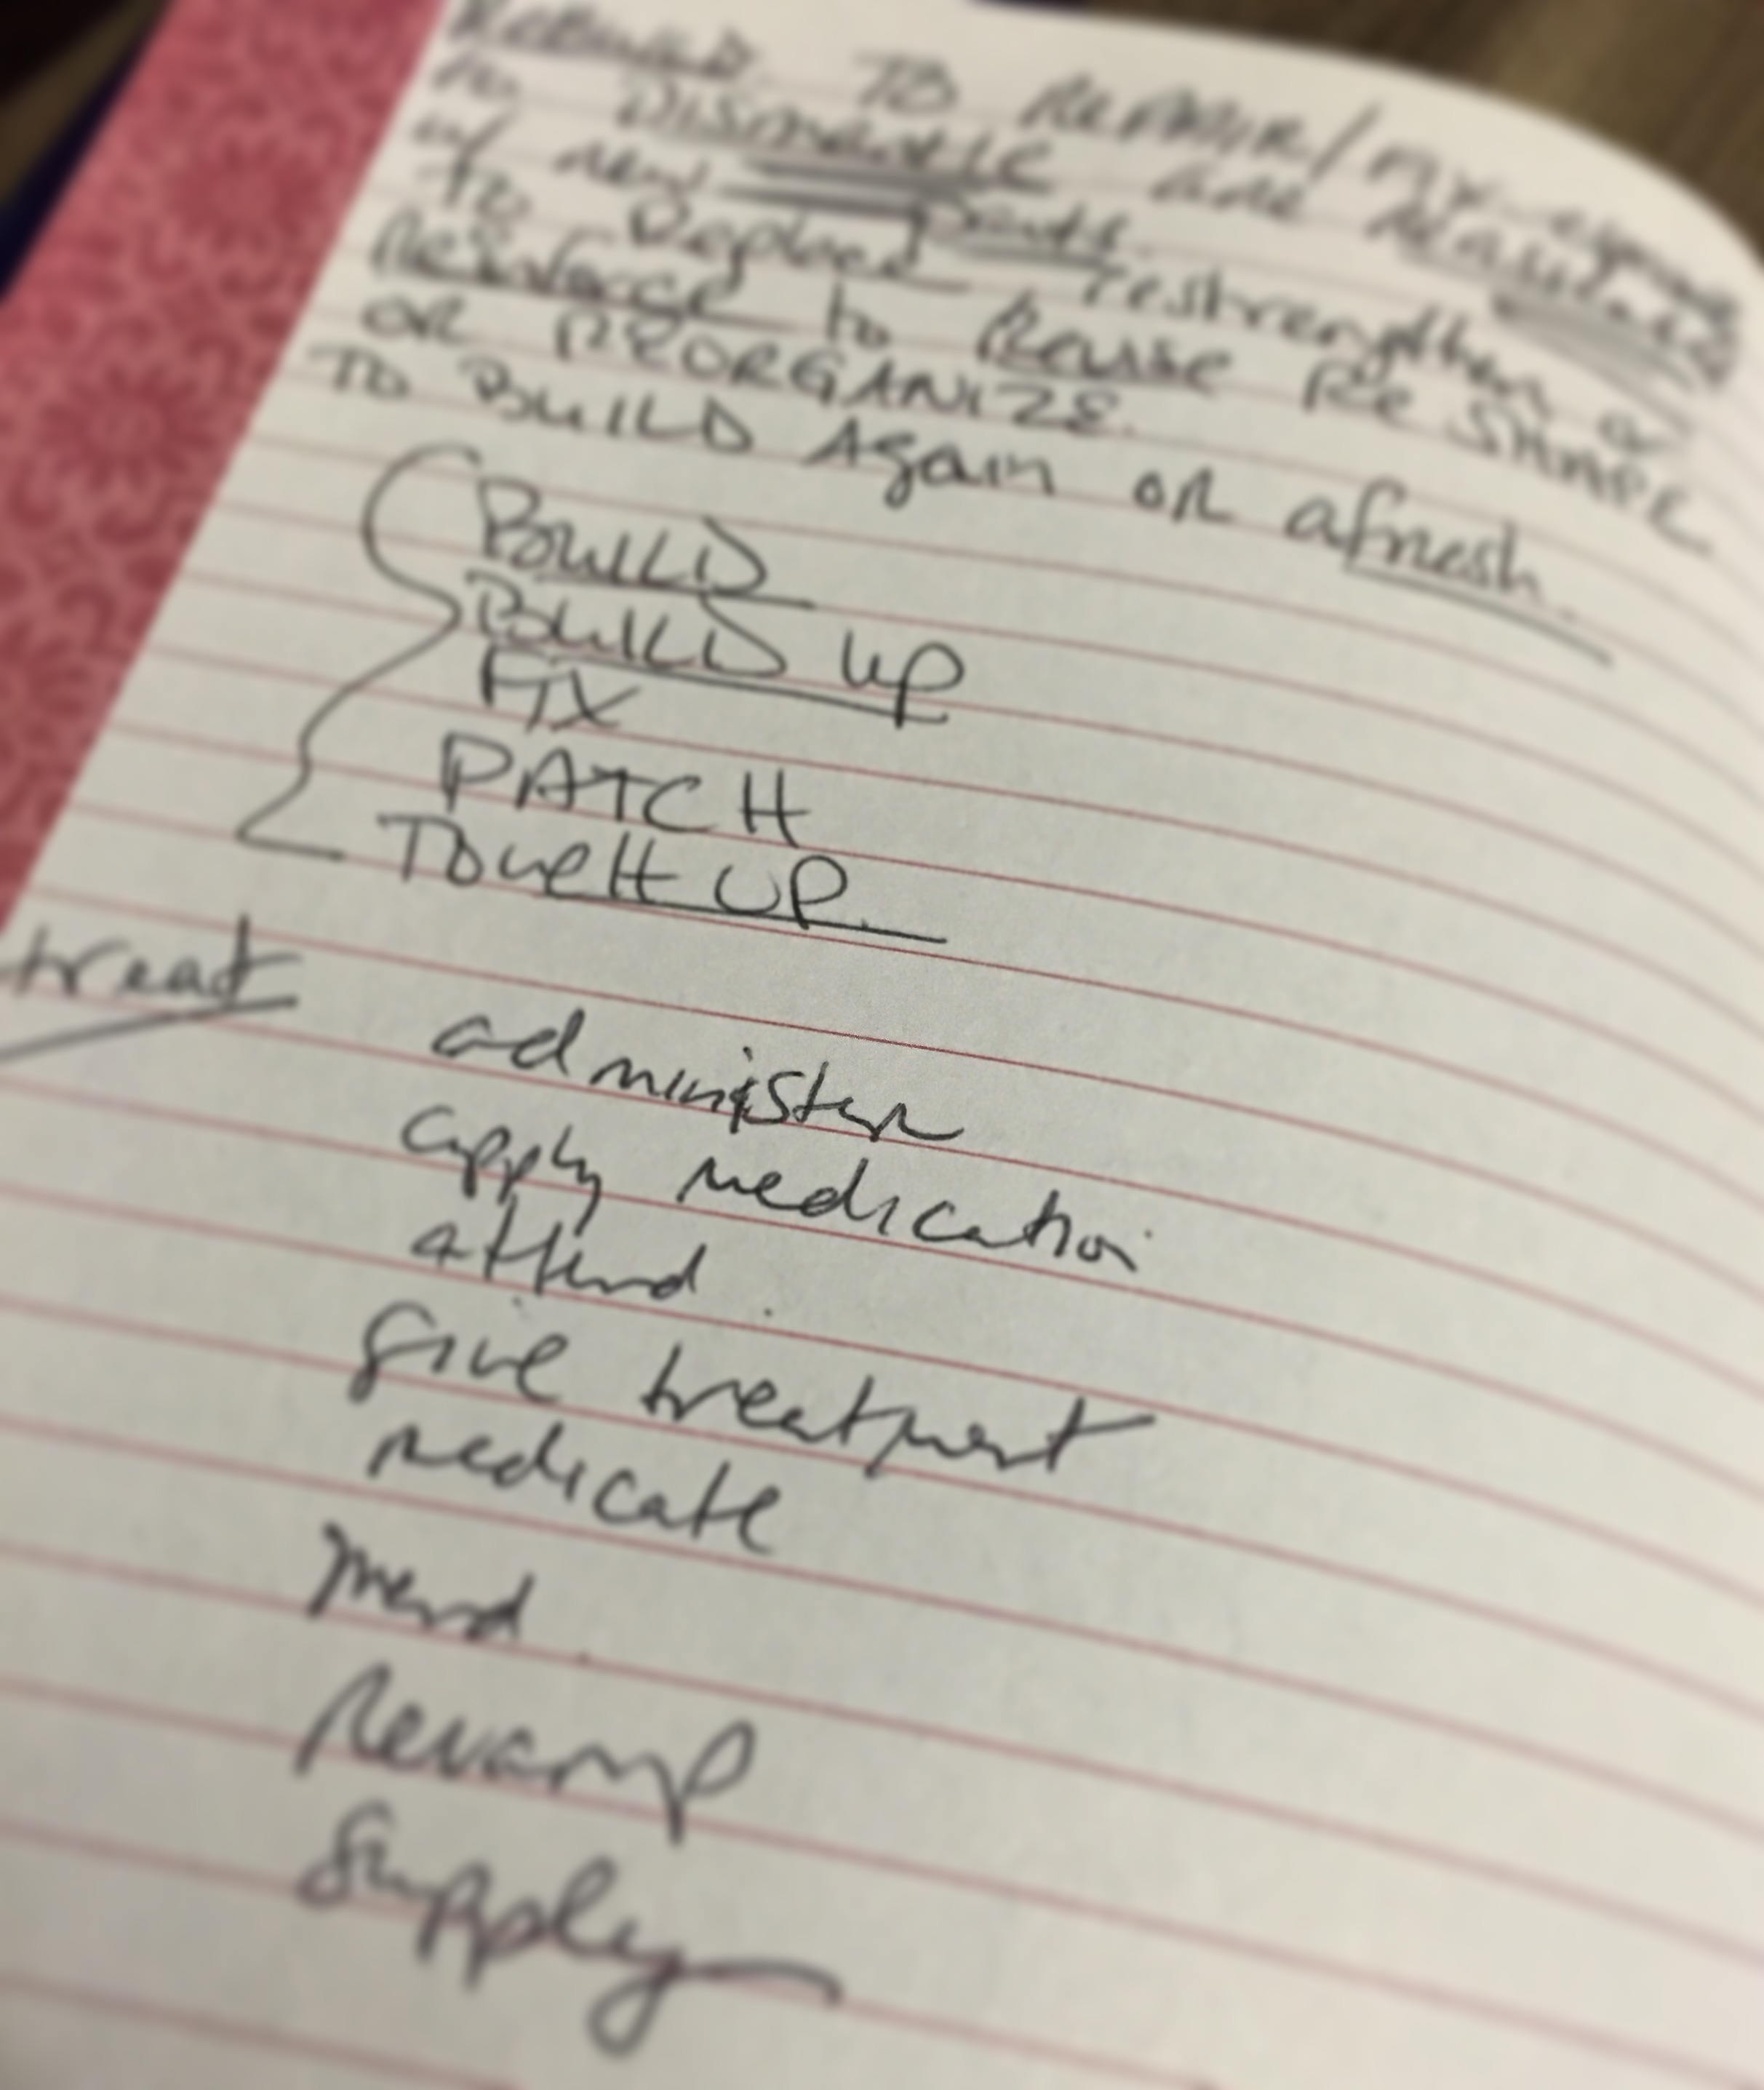 REBUILD TO REPAIR / FIX
to Dismantle and
w/ new parts.
to Replace restrengthen or
Reinforce to Reuse ReShape
OR REORGANIZE.
TO BUILD Again OR afresh.
BUILD
BUILD up
FIX
PATCH
TOUCH UP
treat
administer
apply medication
attend
give treatment
medicate
mend
Revamp
Supply